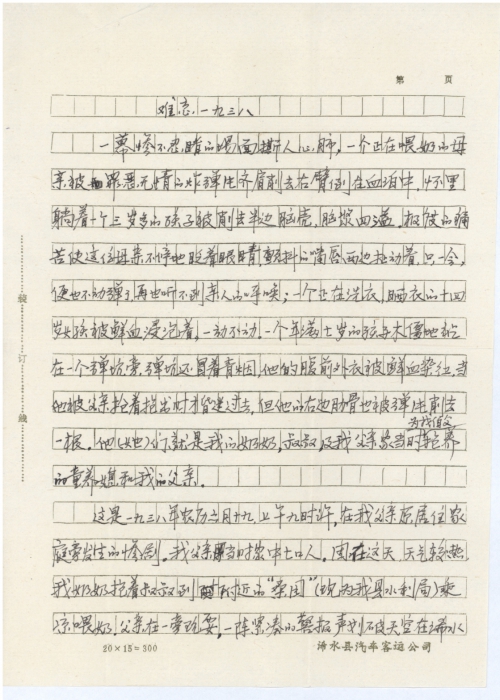 第 页
难忘一九三八
一幕惨不忍睹的场面撕人心肺,一个正在喂奶的母
亲被罪恶无情的炸弹片齐肩削去右臂倒在血泊中,怀里
躺着一个三岁多的孩子被削去半边脑壳,脑浆血溢,极度的痛
苦使这位母亲不停地眨着眼睛,颤抖的嘴唇两边拉动着,只一会,
便也不动弹了再也听不到亲人的呼唤;一个正在洗衣,晒衣的十四
岁女孩被鲜血浸泡着,一动不动,一个年满七岁的孩子木偶地站
在一个弹坑旁,弹坑还冒着青烟,他的腹前外衣被鲜血染红,当
他被父亲抢着抱出时才能走过去,但他的右边肋骨也被弹片削去
为我伯父
一根。他(她)们就是我的奶奶,叔叔,及我父亲家当时抚养
的童养媳和我的父亲。
这是一九三八年农历六月十九上午九时许,在我父亲原居住家
庭旁发生的惨剧。我父亲当时家中七口人,因在这天,天气较热,
我奶奶抱着叔叔到附近的“桑园”(现为我县水利局)乘
凉喂奶,父亲在一旁玩耍,一阵紧凑的警报声划破天空在浠水
线
订
线
20×15=300
浠水县汽车客运公司